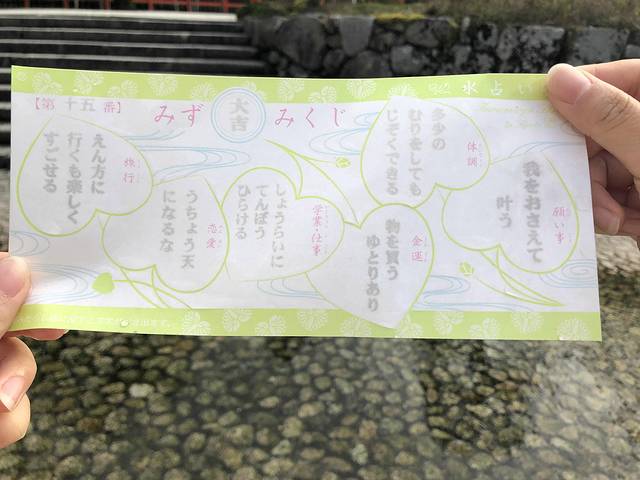 水占い
【第十五番】
みず
大吉
みくじ
願い事
我をおさえて
叶う
体調
多少の
むりをしても
じぞくできる
金運
物を買う
ゆとりあり
学業・仕事
しょうらいに
てんぼう
ひらける
恋愛
うちょう天
になるな
旅行
えん方に
行くも楽しく
すごせる